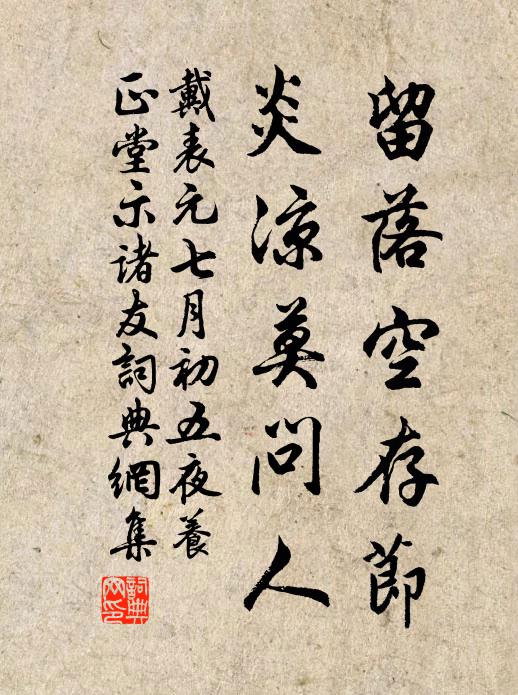 留落空存節
炎涼莫問人
戴表元七月初五夜養
正堂示諸友詞典網集
詞典網印